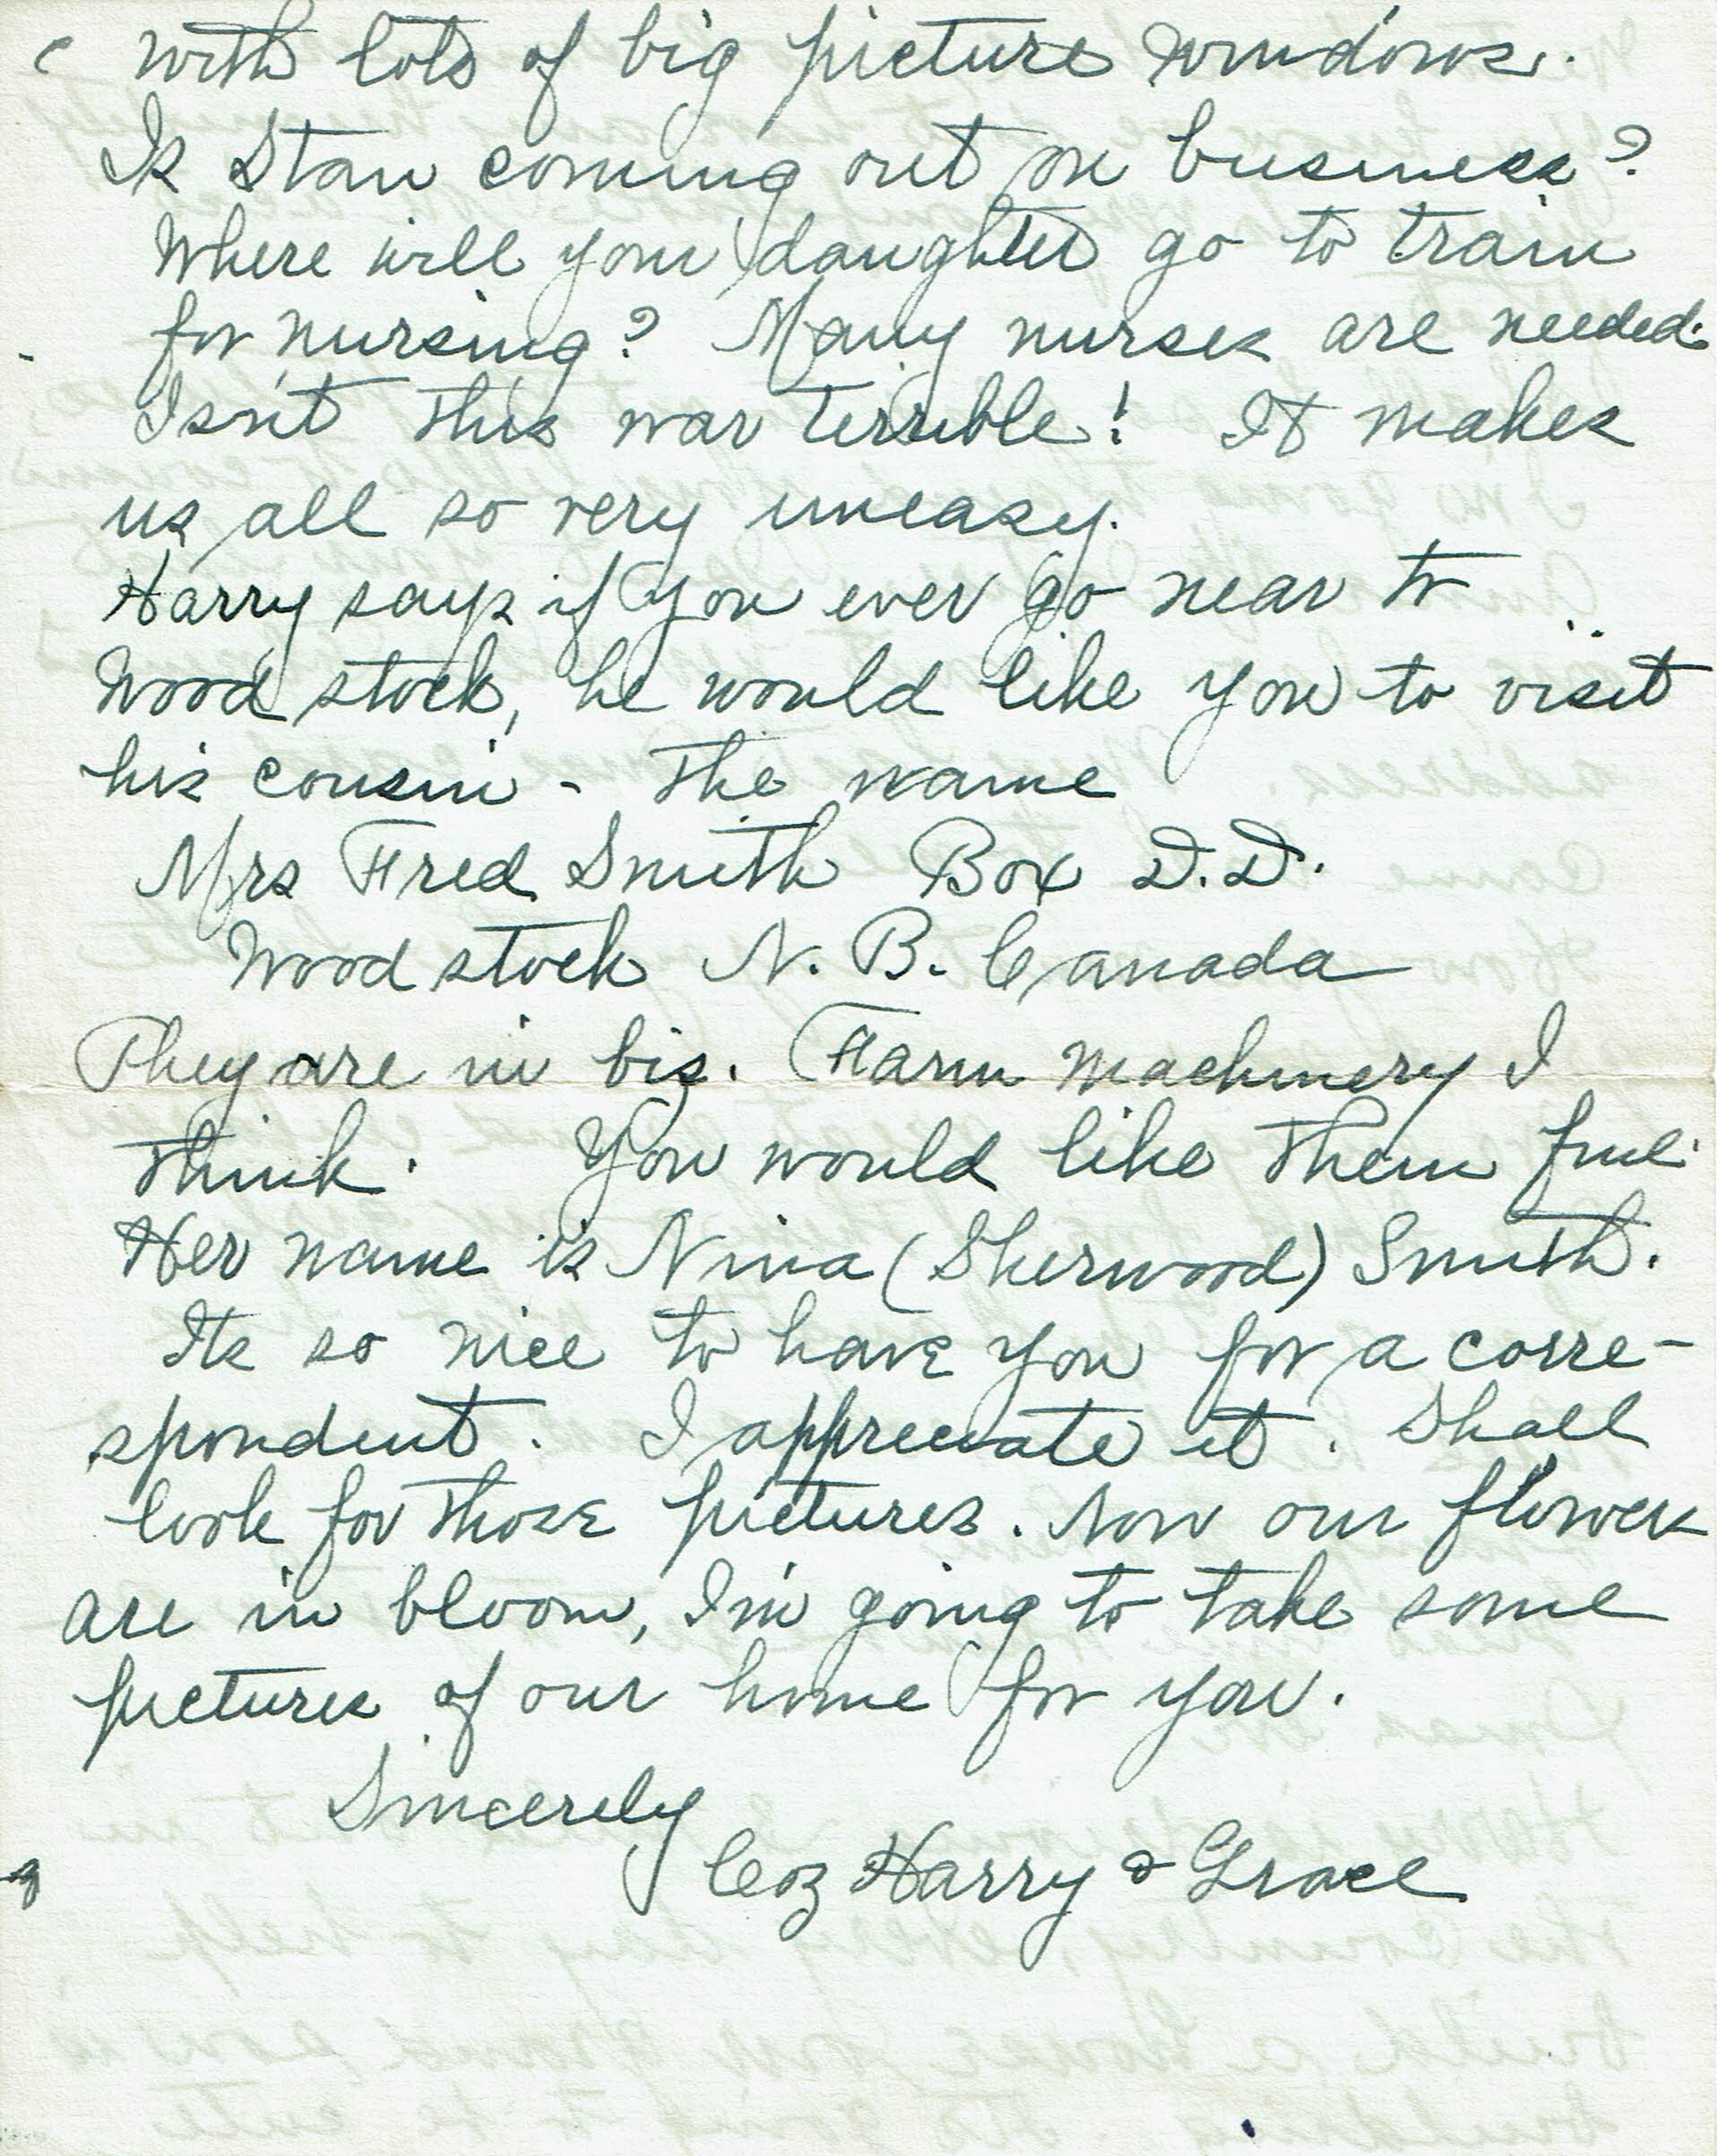 with lots of big picture windows.
Is Stan coming out on business?
Where will your daughter go to train
for nursing? Many nurses are needed.
Isn't this war terrible! It makes
us all so very uneasy.
Harry says if you ever go near to
Woodstock, he would like you to visit
his cousin - The name
Mrs Fred Smith Box D.D.
Woodstock N. B. Canada
They are in biz. Farm machinery I
think. You would like them fine.
Her name is Nina (Sherwood) Smith.
Its so nice to have you for a corre-
spondent. I appreciate it. Shall
look for those pictures. Now our flowers
are in bloom, I'm going to take some
pictures of our home for you.
Sincerely
Coz Harry & Grace